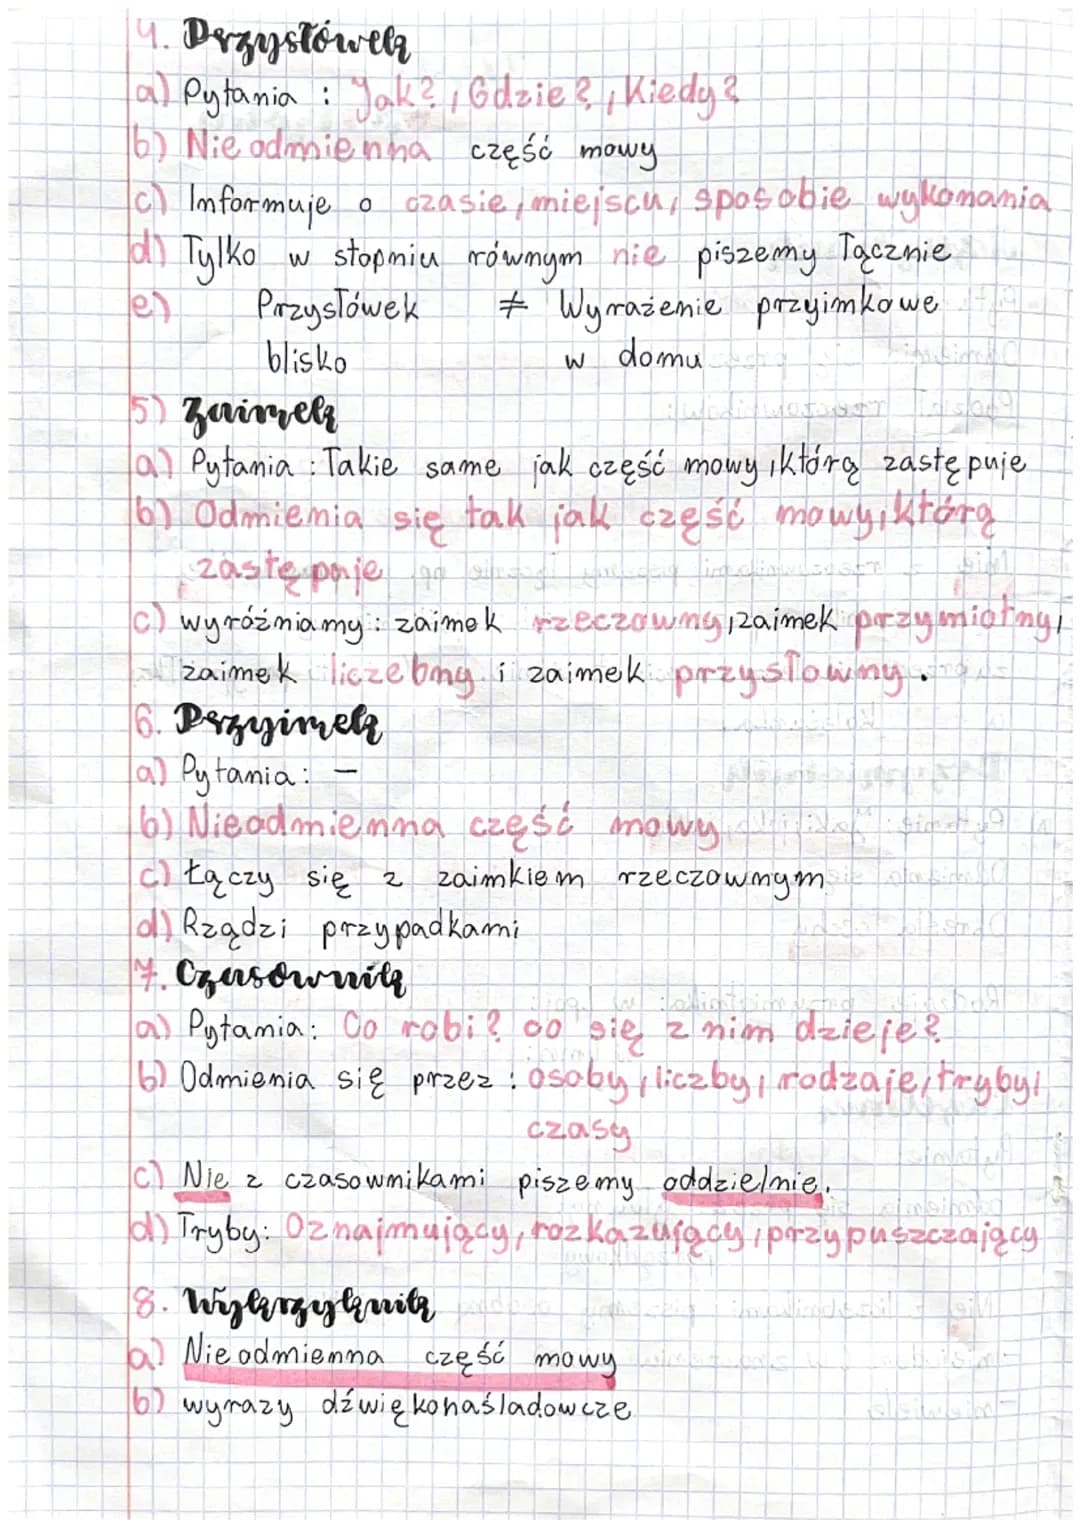 4. Przysłówek
a) Pytania : Jak?, Gdzie?, Kiedy?
b) Nieodmienna część mowy
c) Informuje o czasie, miejscu, sposobie wykonania
d) Tylko w stopniu równym nie piszemy łącznie
e) Przysłówek ≠ Wyrażenie przyimkowe
blisko w domu
5) Zaimek
a) Pytania : Takie same jak część mowy, którą zastępuje
b) Odmienia się tak jak część mowy, którą
zastępuje
c) wyróżniamy : zaimek rzeczowny, zaimek przymiotny,
zaimek liczebny i zaimek przysłowny.
6. Przyimek
a) Pytania: –
b) Nieodmienna część mowy
c) Łączy się z zaimkiem rzeczownym
d) Rządzi przypadkami
7. Czasownik
a) Pytania: Co robi? co się z nim dzieje?
b) Odmienia się przez : osoby, liczby, rodzaje, tryby,
czasy
c) Nie z czasownikami piszemy oddzielnie.
d) Tryby: Oznajmujący, rozkazujący, przypuszczający
8. Wykrzyknik
a) Nieodmienna część mowy
b) wyrazy dźwiękonaśladowcze